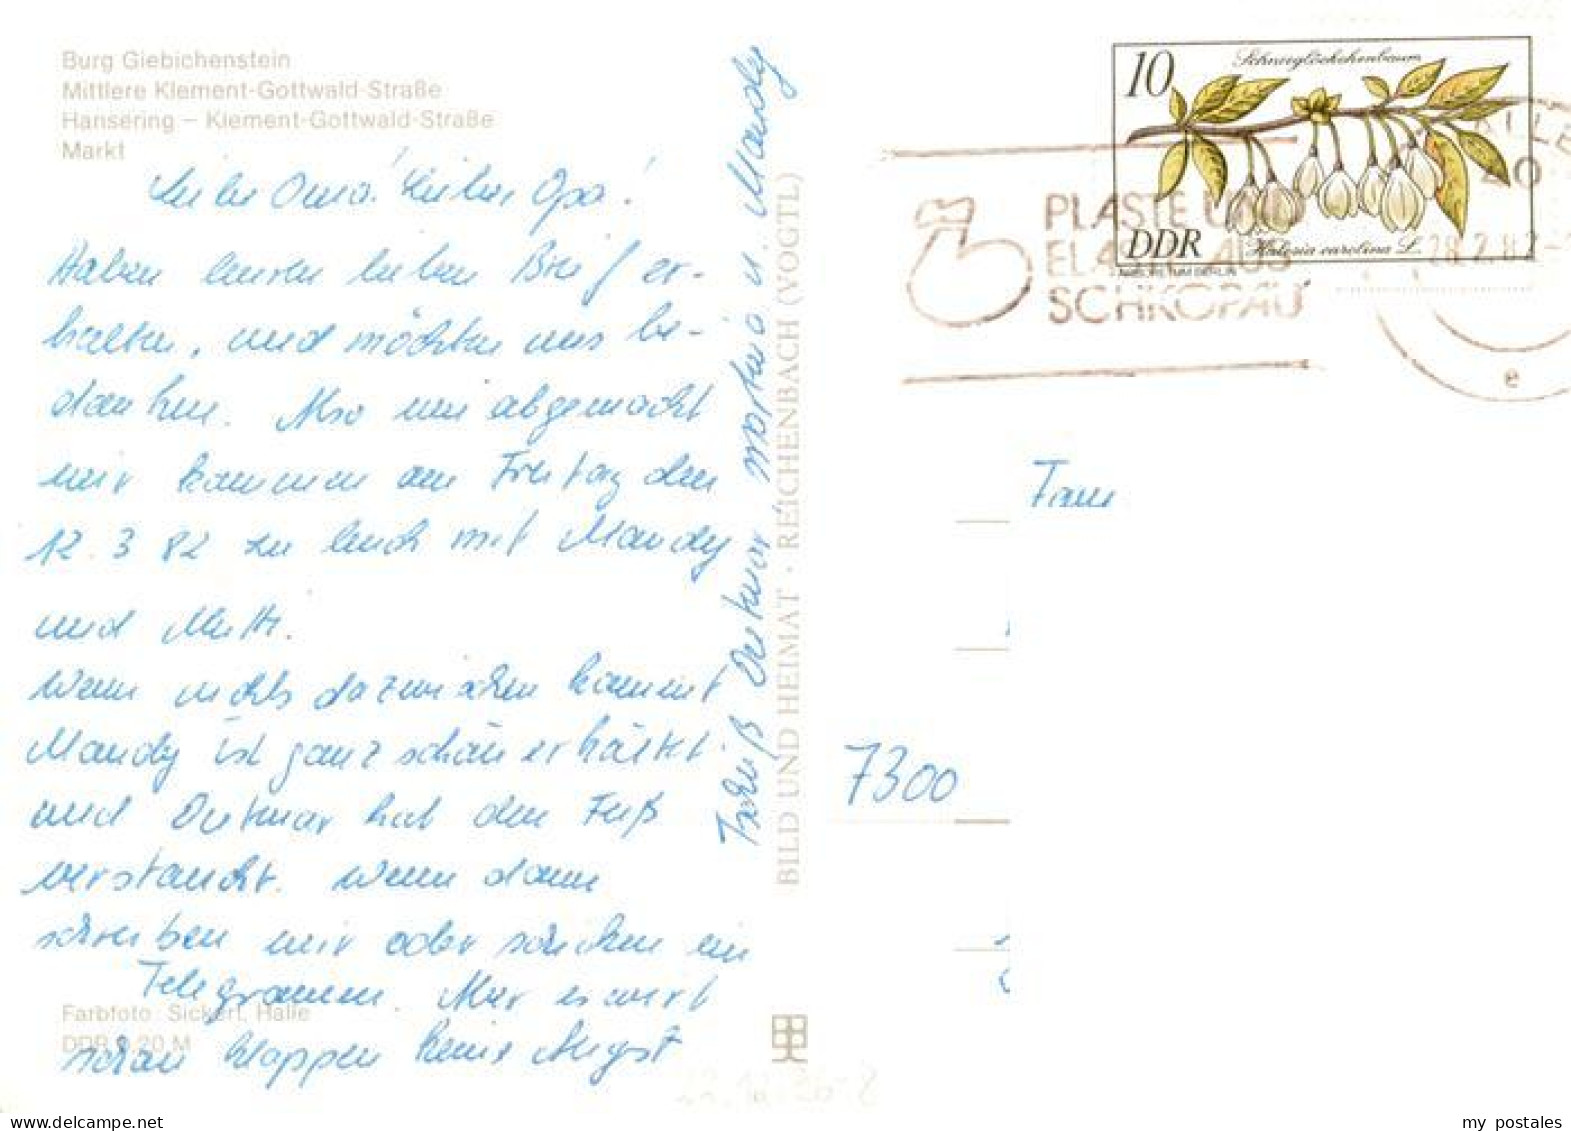 Burg Giebichenstein
Mittlere Klement-Gottwald-Straße
Hansering – Klement-Gottwald-Straße
Markt
Liebe Oma! Lieber Opa!
Haben euren lieben Brief er-
halten, und möchten uns be-
danken. Also wie abgemacht
wir kommen am Freitag den
12.3 82 zu euch mit Mandy
und Mutti.
Wenn nichts dazwischen kommt
Mandy ist ganz schön erkältet
und Dietmar hat den Fuß
verstaucht. Wenn dann
schreiben wir oder schicken ein
Telegramm. Aber es wird
schon klappen keine Angst
Tschüß Dietmar Martina u. Mandy
Farbfoto: Sickert, Halle
DDR 0,20 M
BILD UND HEIMAT · REICHENBACH (VOGTL)
10
Schneeglöckchenbaum
DDR
Halesia carolina L.
PLASTE UND
ELASTE AUS
SCHKOPAU
HALLE
20
28.2.82
e
7300
my_postales